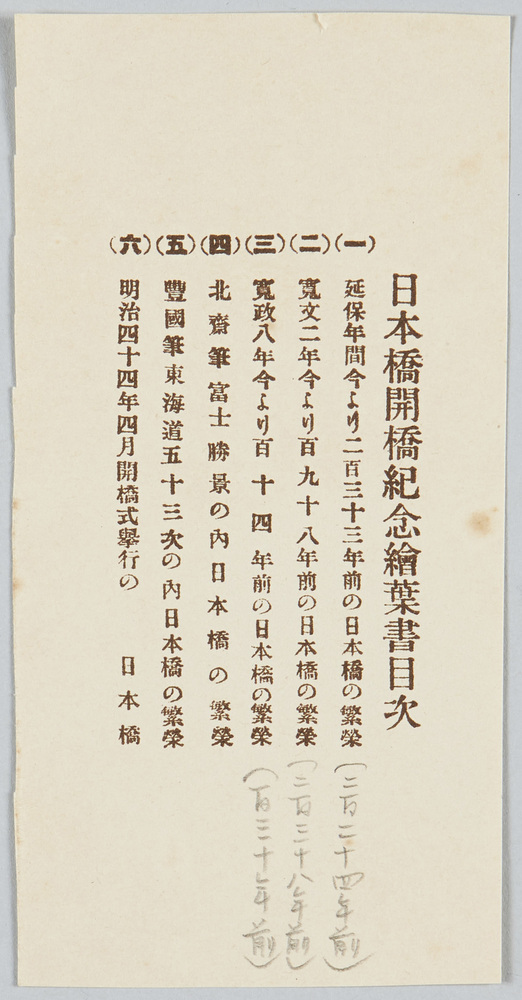 日本橋開橋紀念繪葉書目次
(一) 延保年間今より二百三十三年前の日本橋の繁榮 (二百二十四年前)
(二) 寬文二年今より百九十八年前の日本橋の繁榮 (二百三十八年前)
(三) 寬政八年今より百十四年前の日本橋の繁榮 (百三十年前)
(四) 北齋筆富士勝景の內日本橋の繁榮
(五) 豐國筆東海道五十三次の內日本橋の繁榮
(六) 明治四十四年四月開橋式擧行の 日本橋